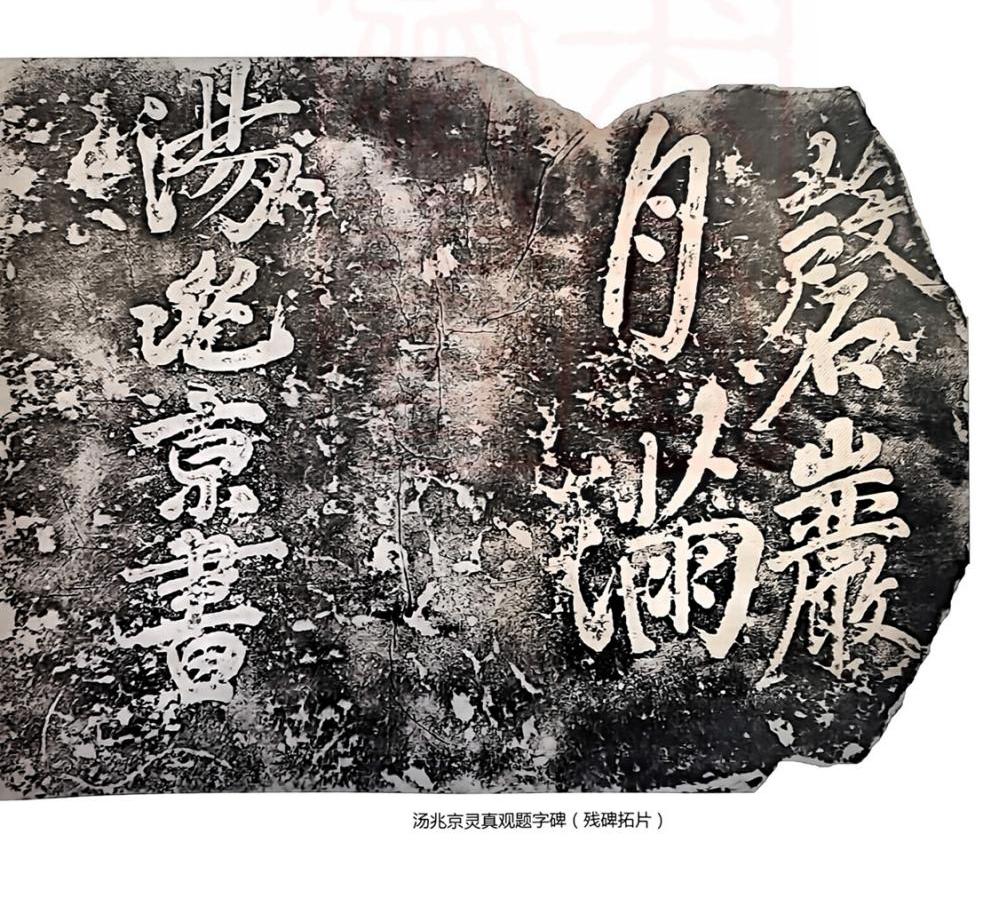 磬巖
月滿
湯兆京書
汤兆京灵真观题字碑（残碑拓片）